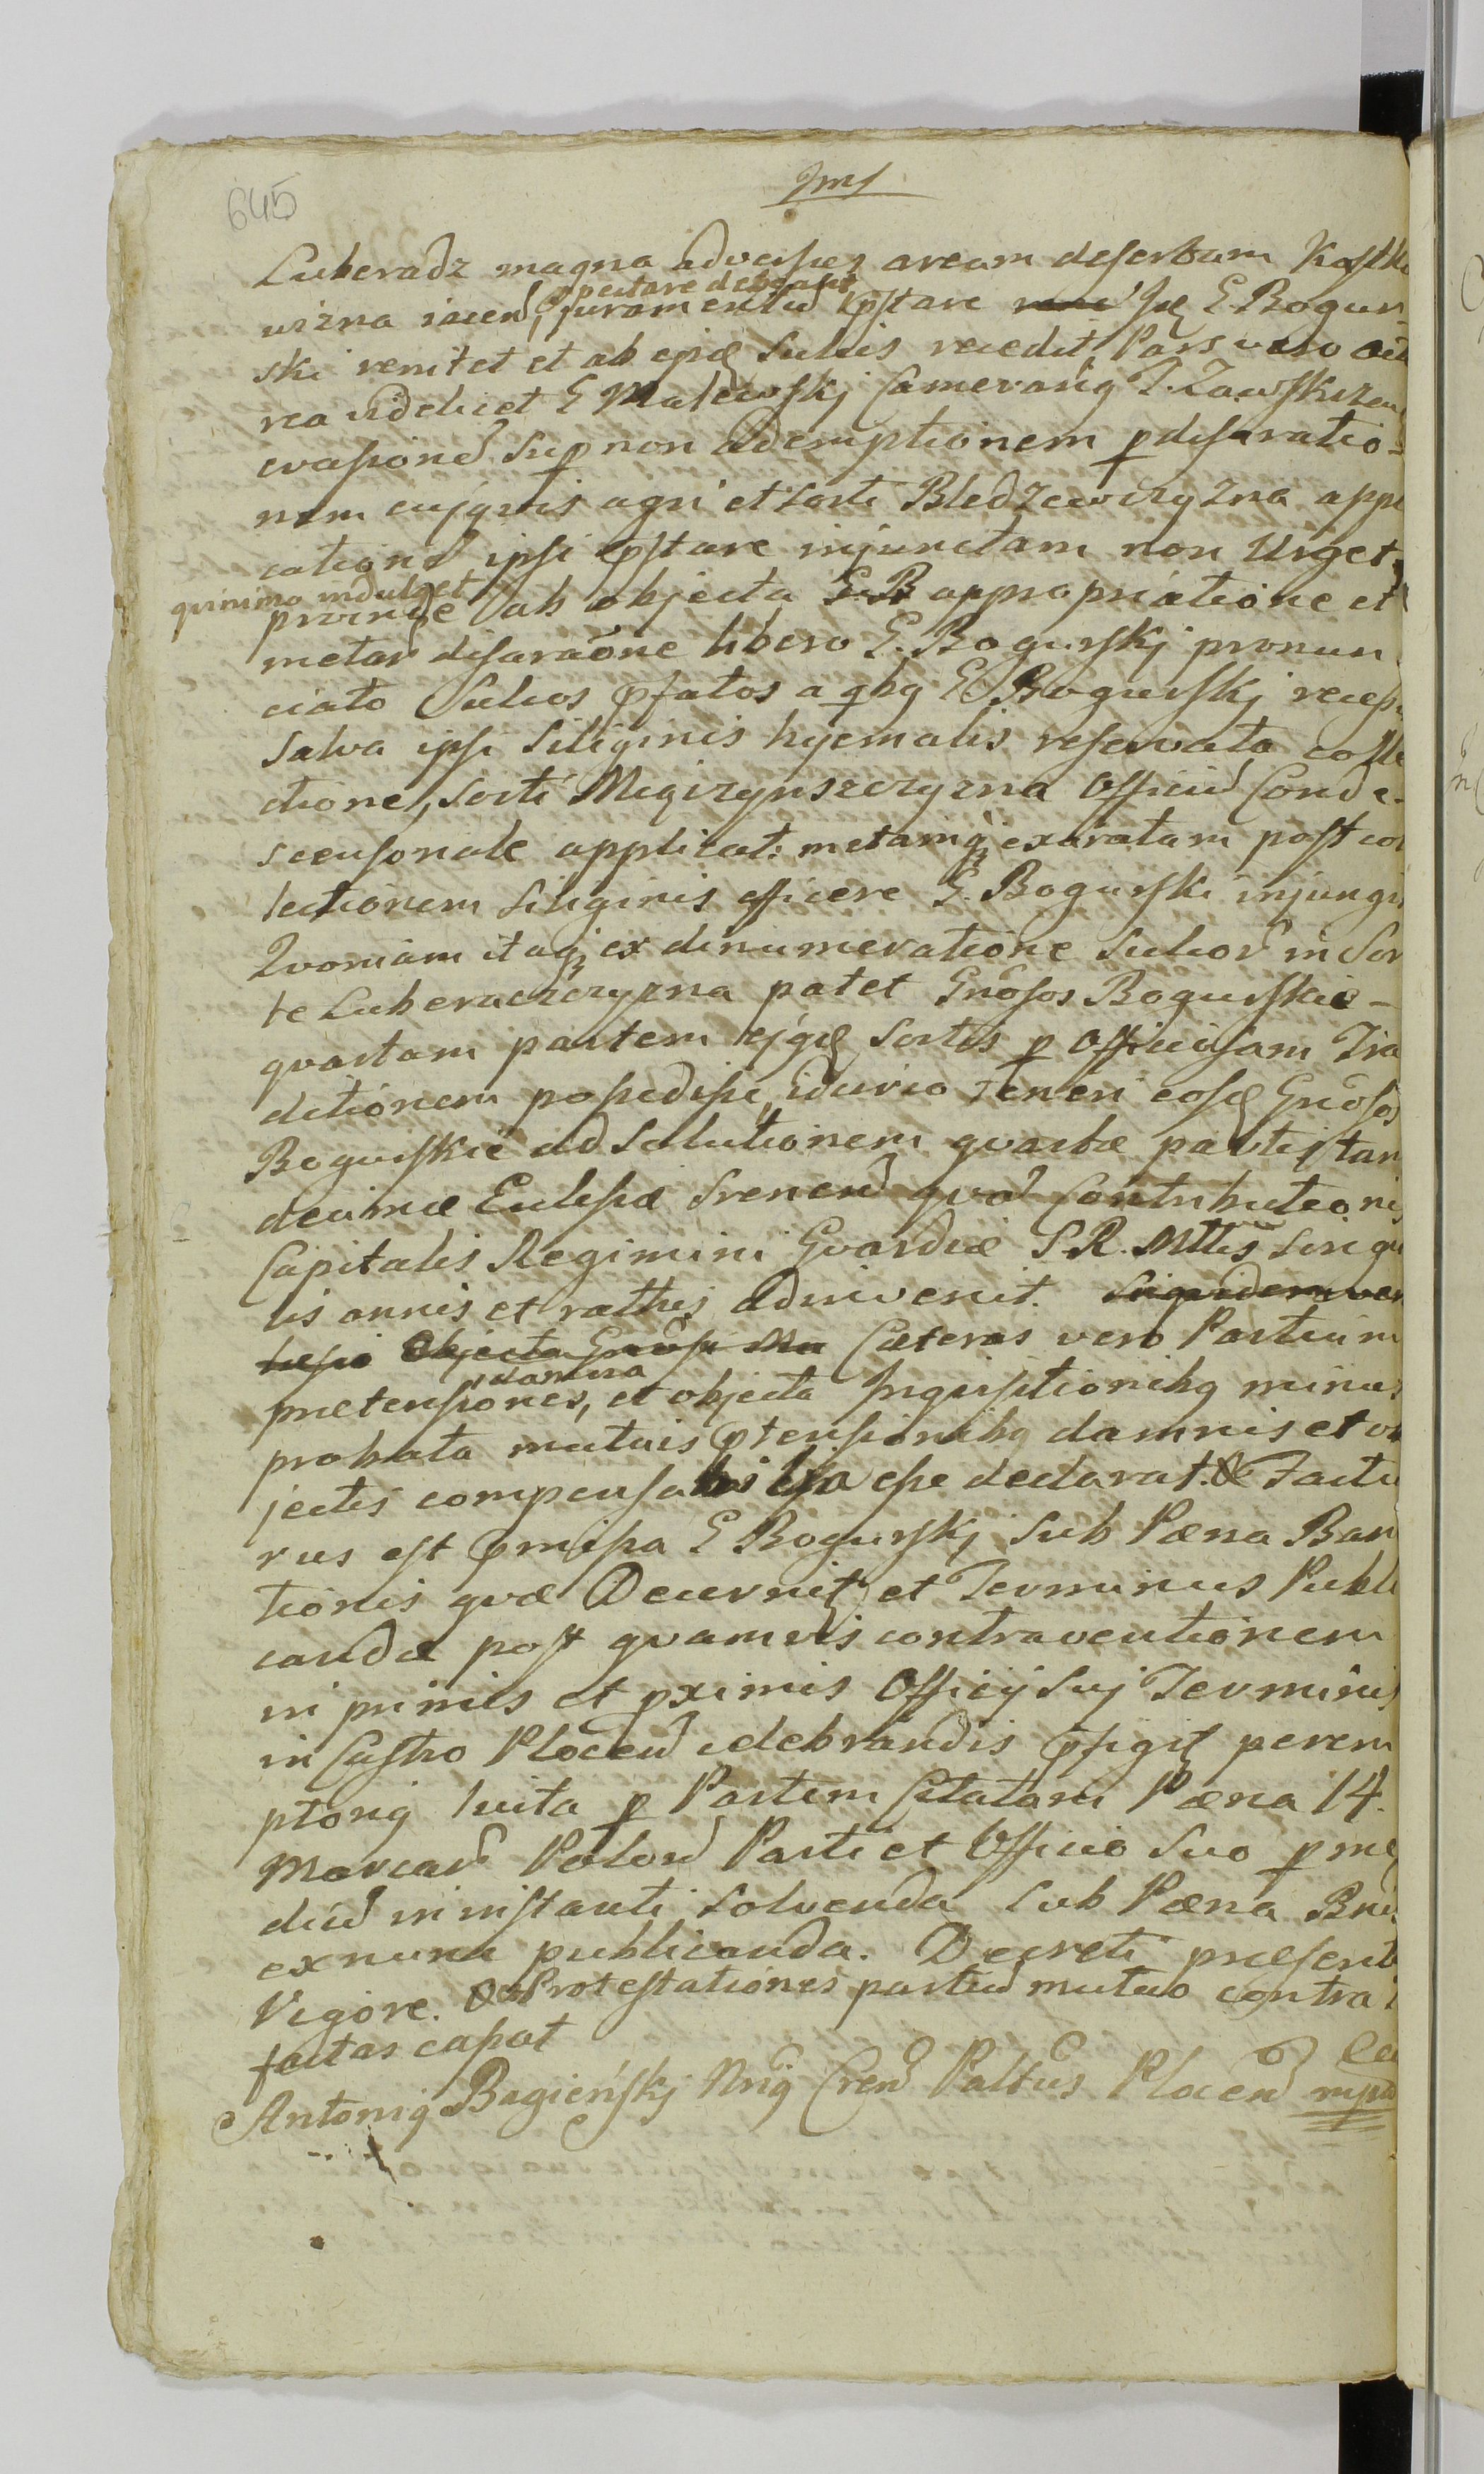 645
Jms
Luberadz magna adversus aream desertam Kostko
wizna iacend, spectare debeant juramentũ pstare se G. Bogur-
ski renitet et ab ijsd Sulcis recedit, Pars vero act
rea videlicet G Malewskj Camerariq T. Zawskrzen
evasionẽ Sup non ademptionem p disaratio-
nem cujusvis agri et Sorti Bledzewizyzna appli
cationẽ ipsi pstare injunctam non Urget,
quinimo indulget
proinde ab objecta appropriatione et
metar disaraõne libero G. Bogurskj pronun
ciato Sulcos pfatos a qbq G Bogurskj recess
Salva ipsi Siliginis hyemalis reservata colle
ctione, Sorti Męczynszczyzna Officiũ Conde-
scensoriale applicat: metamq; exaratam post col
lectionem Siliginis efficere G. Bogurski injungit
Quoniam itaq; ex dinumeratione Sulcor in Sor
te Luberaczczyzna patet Gnõsos Bogurskie -
quartam partem ejqd Sortis p Officiosam Tra
ditionem possedisse, idcirco teneri eosd Gnõsos
Bogurskie ad Solutionem quartæ partis tam
decimæ Eclesiæ Srenens quam Contributionis
Capitalis Regimini Gvardiæ S.R. Mttis Singu
lis annis et rathis adinvenit. Siquidem ver
Objecta Gnõsi Ma Cæteras vero Partium
prætensiones, damna et objecta Inquisitionibq minus
probata mutuis ptensionibq damnis et ob
jectis compensabilia esse declarat. & Factu
rus est pmissa G Bogurskj Sub Pæna Ban
tionis quæ Decernitq et Terminus Publi
candæ post quamvis contraventionem
in primis et pximis Officij Sui Terminis
in Castro Plocens celebrandis pfigitq perem
ptoriq luita p Partem Citatam Pæna 14.
Marcar Polon Parti et Officio Suo p me
diũ in instanti Solvenda Sub Pæna Bnis
exnunc publicanda. Decreti præsent
Vigore. Protestationes partiũ mutuo contra
factas cassat
Antoniq Bagieńskj Cren Plocens mpp